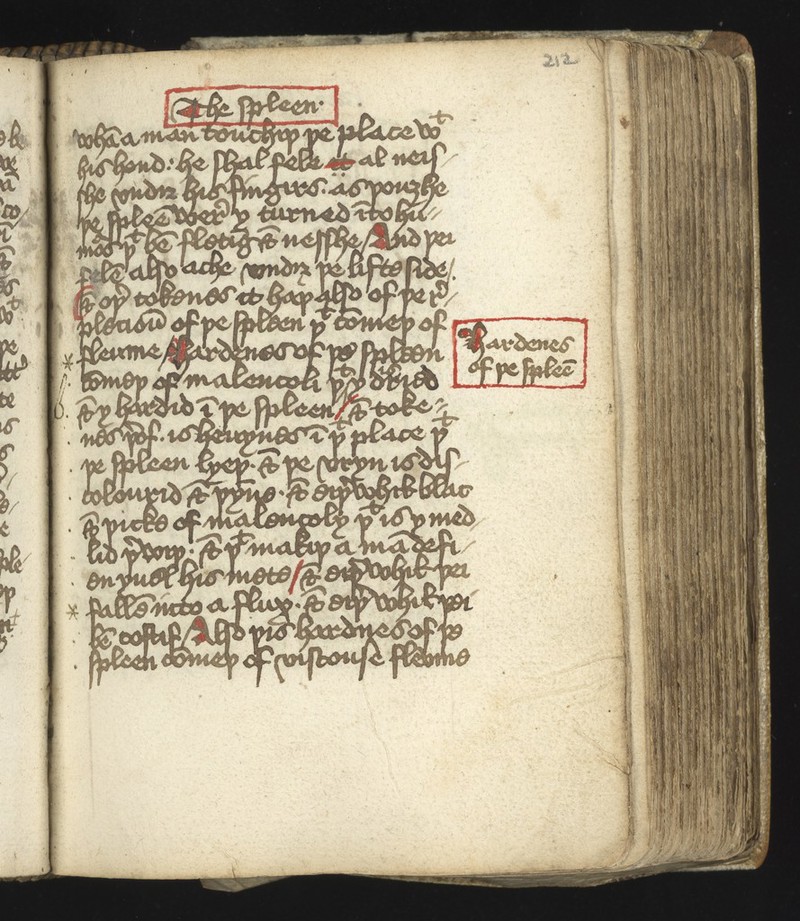 212
The spleen·
whā a man touchiþ þe place wᵗ
his hond: he shal fele it al neis-
she vndir his fingirs. as þouȝhe
þe spleē wer̄ y turned ī to hu-
mōs þᵗ bē fletīg & nesshe / And þei
felē also ache vndir þe lifte side.
& oþ̄ tokenes it haþ also of þe r̄-
pleciou̅ of þe spleen þᵗ cōmeþ of
fleume / Hardenes of þe spleen
cōmeþ of malencoli þᵗ y dried
& y hardid ī þe spleen / & toke-
nes þ̄of. is heuynes ī þᵗ place þᵗ
þe spleen lyeþ. & þe vryn is dis-
colourid & þyn̄e. & oþ̄whil blac
& þicke of malencoly þᵗ is y med-
lid þ̄wiþ. & þᵗ makiþ a mā defi-
en yuel his mete / & oþ̄whil þei
fallē into a flux. & oþ̄whil þei
bē costif / Also þis hardnes of þe
spleen cōmeþ of viscouse fleume
Hardenes
of þe spleē